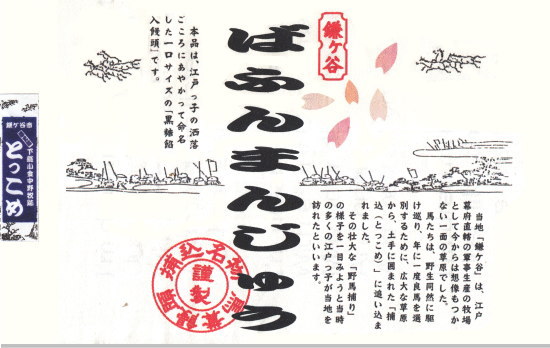 鎌ケ谷
ばふんまんじゅう
当地「鎌ケ谷」は、江戸
幕府直轄の軍事生産の牧場
として今からは想像もつか
ない一面の草原でした。
馬たちは、野生同然に駆
け巡り、年に一度良馬を選
別するために、広大な草原
から、土手に囲まれた「捕
込（とっこめ）」に追い込ま
れました。
その壮大な「野馬捕り」
の様子を一目みようと当時
の多くの江戸っ子が当地を
訪れたといいます。
本品は、江戸っ子の洒落
ごころにあやかって命名
した一口サイズの「黒糖餡
入饅頭」です。
捕込名物
謹製
鎌ケ谷市
下総小金中野牧跡
とっこめ